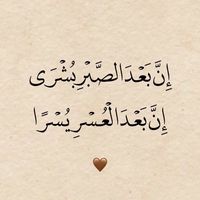 إِنَّ بَعْدَ الصَّبْرِ بُشْرَى
إِنَّ بَعْدَ الْعُسْرِ يُسْرًا
🤎